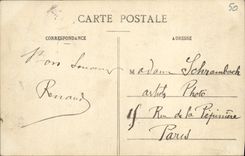 50
CARTE POSTALE
CORRESPONDANCE
ADRESSE
Bons Souvenirs
Renaud
Madame Schrambach
artiste Photo
15 Rue de la Pépinière
Paris